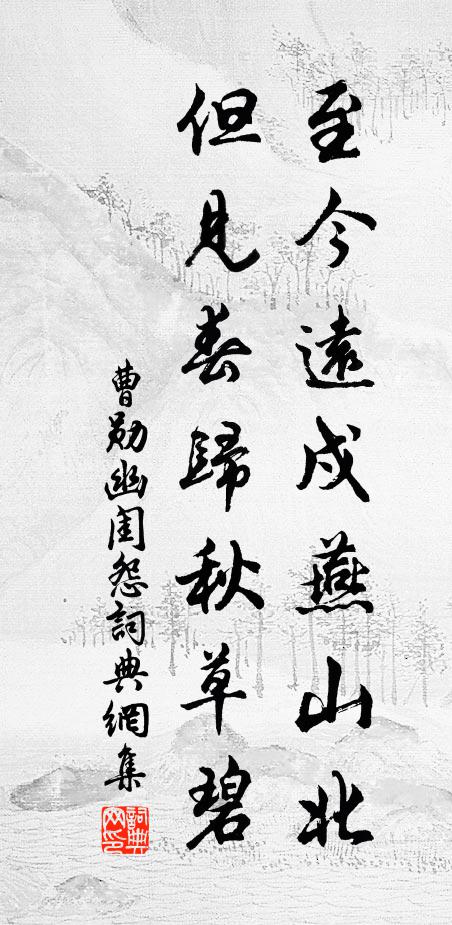 至今遠戍燕山北
但見春歸秋草碧
曹勛幽閨怨詞典網集
詞典
网印